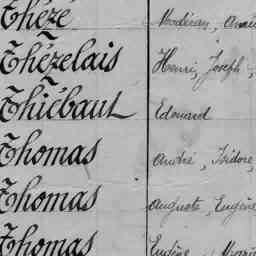 Thézé
Thézelais Henri, Joseph,
Thiébaut Edouard
Thomas André, Isidore,
Thomas Auguste, Eugène
Thomas Eugène, Marie